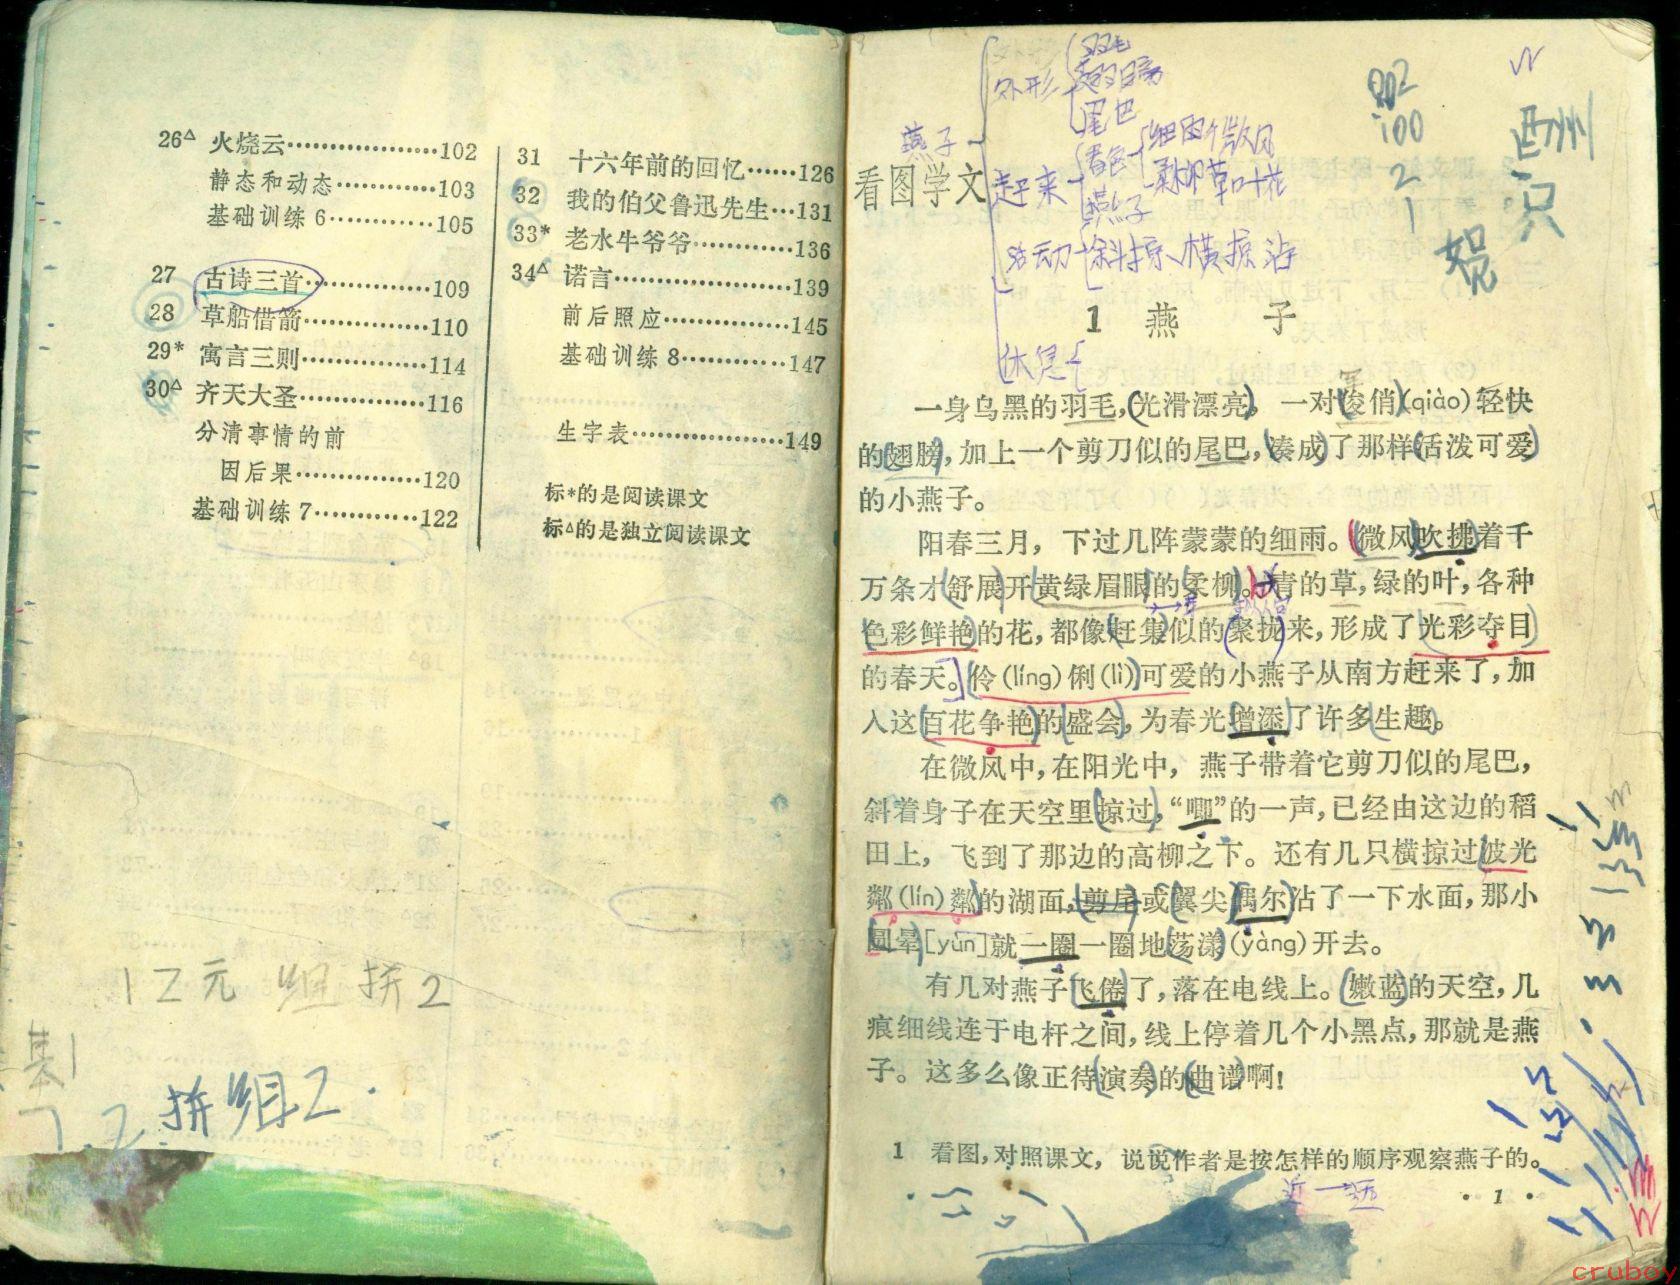 26△ 火烧云………………102
静态和动态…………103
基础训练 6…………105
27 古诗三首……………109
28 草船借箭……………110
29* 寓言三则……………114
30△ 齐天大圣……………116
分清事情的前
因后果……………120
基础训练 7…………122
31 十六年前的回忆……126
32 我的伯父鲁迅先生…131
33* 老水牛爷爷…………136
34△ 诺言…………………139
前后照应……………145
基础训练 8…………147
生字表………………149
标*的是阅读课文
标△的是独立阅读课文
12元 组 拼2
基1
7.2 拼组2.
燕子
外形
羽毛
翅膀
尾巴
赶来
春色
细雨 微风
柔柳 草 叶 花
燕子
活动 斜掠、横掠 沾
休息
802
100
2
1
看图学文
1 燕 子
一身乌黑的羽毛,光滑漂亮,一对俊俏(qiào)轻快
的翅膀,加上一个剪刀似的尾巴,凑成了那样活泼可爱
的小燕子。
阳春三月,下过几阵蒙蒙的细雨。微风吹拂着千
万条才舒展开黄绿眉眼的柔柳。青的草,绿的叶,各种
色彩鲜艳的花,都像赶集似的聚拢来,形成了光彩夺目
的春天。伶(líng)俐(lì)可爱的小燕子从南方赶来了,加
入这百花争艳的盛会,为春光增添了许多生趣。
在微风中,在阳光中,燕子带着它剪刀似的尾巴,
斜着身子在天空里掠过,“唧”的一声,已经由这边的稻
田上,飞到了那边的高柳之下。还有几只横掠过波光
粼(lín)粼的湖面,剪尾或翼尖偶尔沾了一下水面,那小
圆晕[yùn]就一圈一圈地荡漾(yàng)开去。
有几对燕子飞倦了,落在电线上。嫩蓝的天空,几
痕细线连于电杆之间,线上停着几个小黑点,那就是燕
子。这多么像正待演奏的曲谱啊!
1 看图,对照课文,说说作者是按怎样的顺序观察燕子的。
近→远
·1·
cruboy